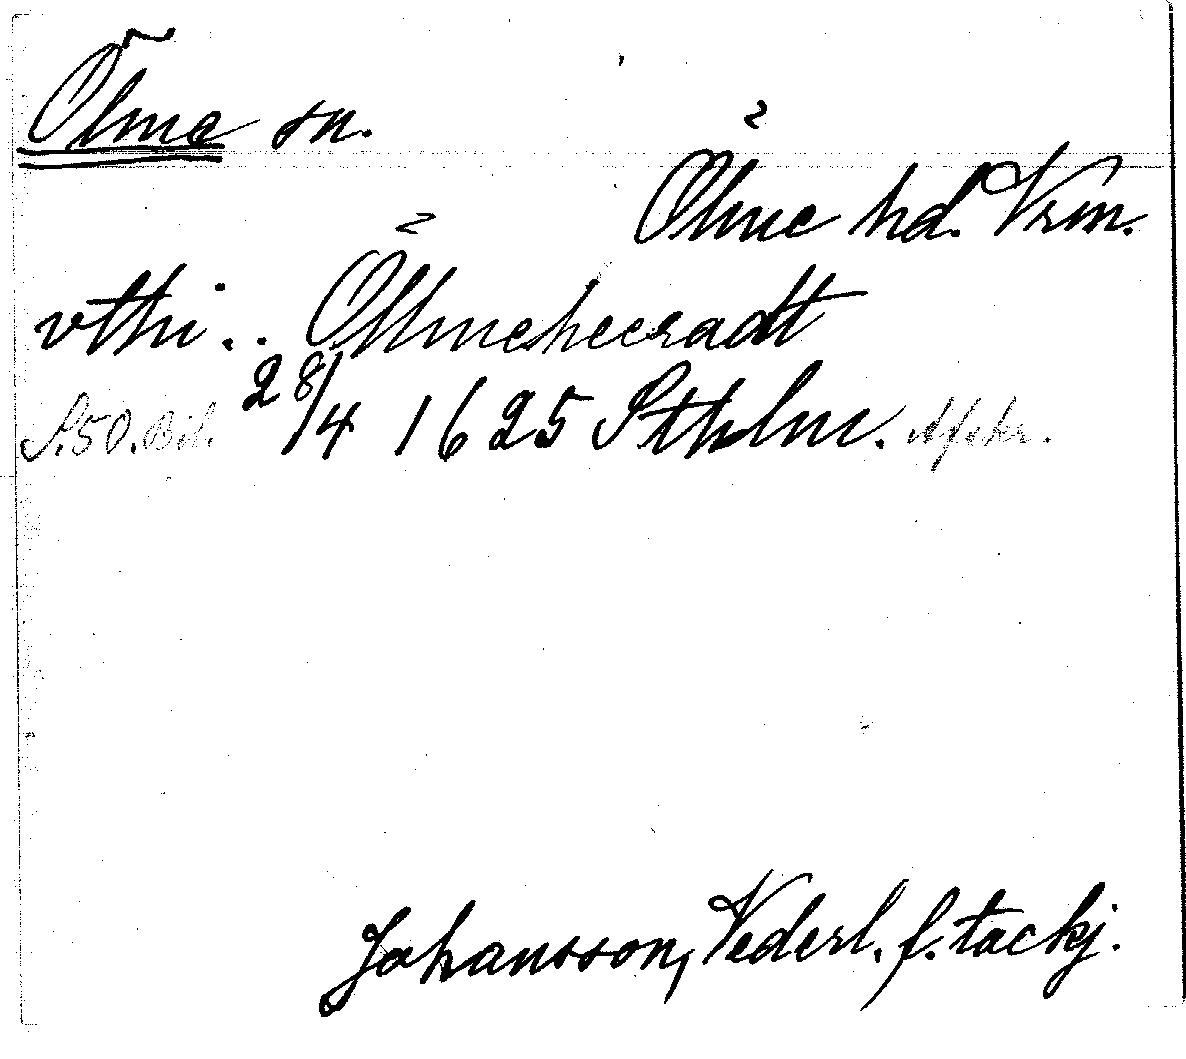 Ölme sn.
Ölme hd. Vrm.
vthi .. Öllmeheeradt
S. 50. Bil. 28/4 1625 Sthlm. Afskr.
Johansson, Vederl. f. tackj.